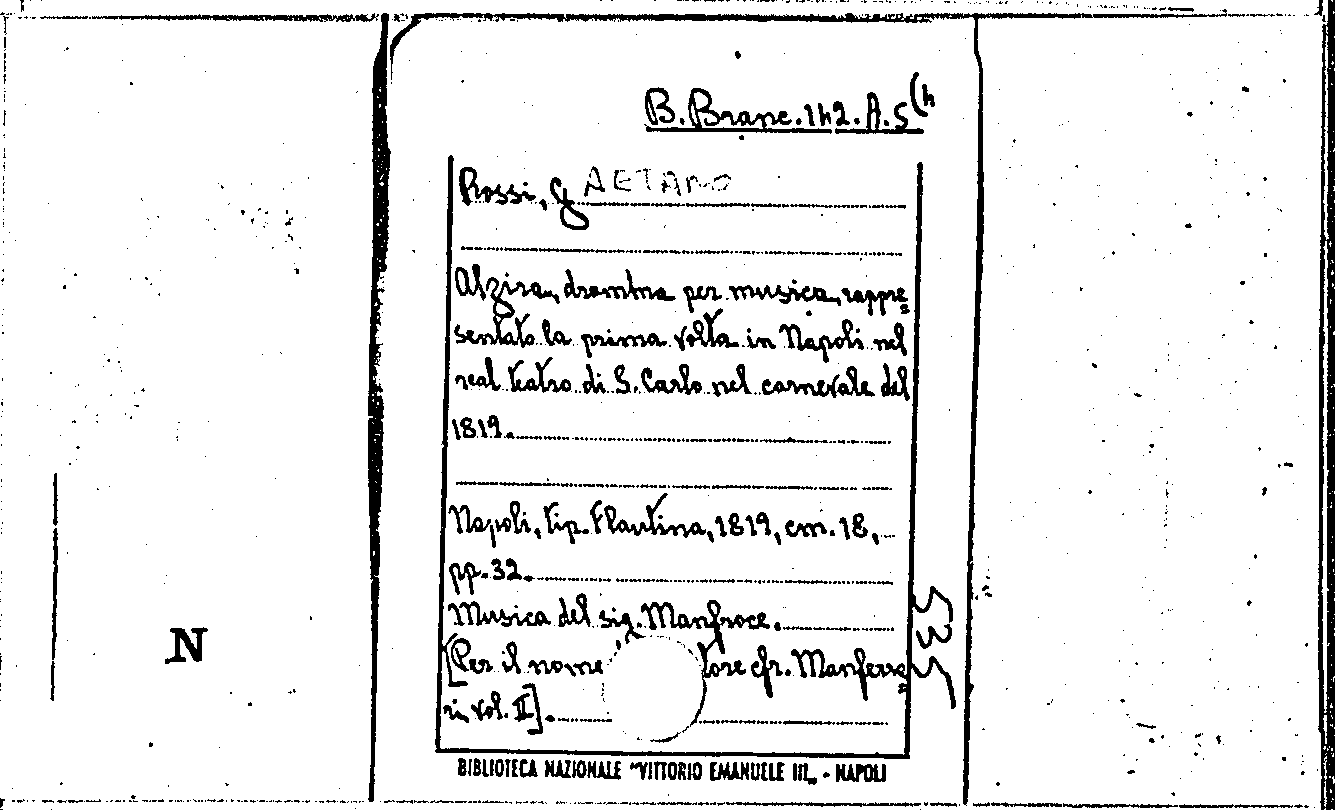 B. Branc. 142. A. 5(4
Rossi, GAETANO
Alzira, dramma per musica, rappre=
sentato la prima volta in Napoli nel
real teatro di S. Carlo nel carnevale del
1819.
Napoli, tip. Flautina, 1819, cm. 18,
pp. 32.
Musica del sig. Manfroce.
535
[Per il nome tore cfr. Manferra=
ri, vol. II].
N
BIBLIOTECA NAZIONALE "VITTORIO EMANUELE III„ - NAPOLI